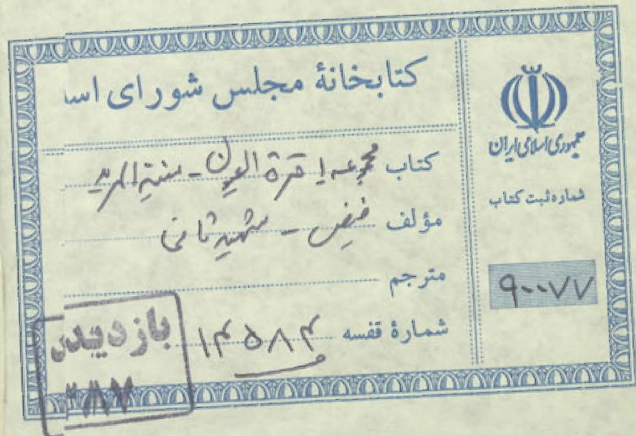 کتابخانهٔ مجلس شورای اسا
جمهوری اسلامی ایران
شمارهٔ ثبت کتاب
۹۰۰۷۷
کتاب مجموعه قرة العیون - منیة المرید
مؤلف فیض - شهید ثانی
مترجم
شمارهٔ قفسه ۱۴۵۸۴
بازدید